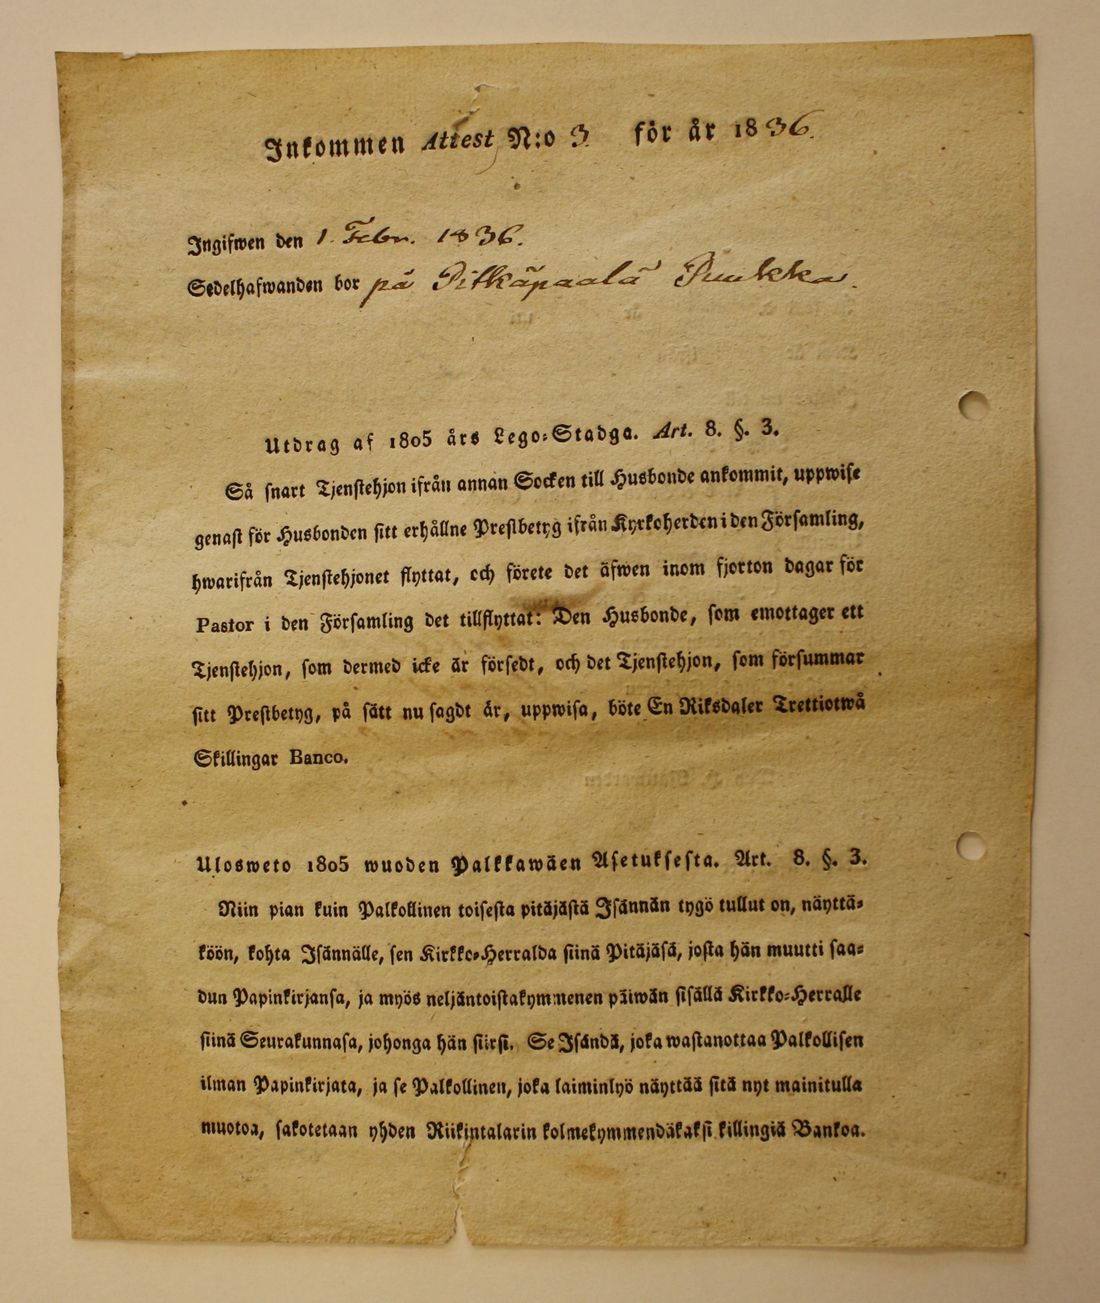 Inkommen Attest N:o 3. för år 1836.
Ingifwen den 1. Febr. 1836.
Sedelhafwanden bor på Pitkäpaalä Puukka.
Utdrag af 1805 års Lego-Stadga. Art. 8. §. 3.
Så snart Tjenstehjon ifrån annan Socken till Husbonde ankommit, uppwise
genast för Husbonden sitt erhållne Prestbetyg ifrån Kyrkoherden i den Församling,
hwarifrån Tjenstehjonet flyttat, och förete det äfwen inom fjorton dagar för
Pastor i den Församling det tillflyttat: Den Husbonde, som emottager ett
Tjenstehjon, som dermed icke är försedt, och det Tjenstehjon, som försummar
sitt Prestbetyg, på sätt nu sagdt är, uppwisa, böte En Riksdaler Trettiotwå
Skillingar Banco.
Ulosweto 1805 wuoden Palkkawäen Asetuksesta. Art. 8. §. 3.
Niin pian kuin Palkollinen toisesta pitäjästä Isännän tygö tullut on, näyttä-
köön, kohta Isännälle, sen Kirkko-Herralda siinä Pitäjäsä, josta hän muutti saa-
dun Papinkirjansa, ja myös neljäntoistakymmenen päiwän sisällä Kirkko-Herralle
siinä Seurakunnasa, johonga hän siirsi. Se Isändä, joka wastanottaa Palkollisen
ilman Papinkirjata, ja se Palkollinen, joka laiminlyö näyttää sitä nyt mainitulla
muotoa, sakotetaan yhden Riikintalarin kolmekymmendäkaksi killingiä Bankoa.